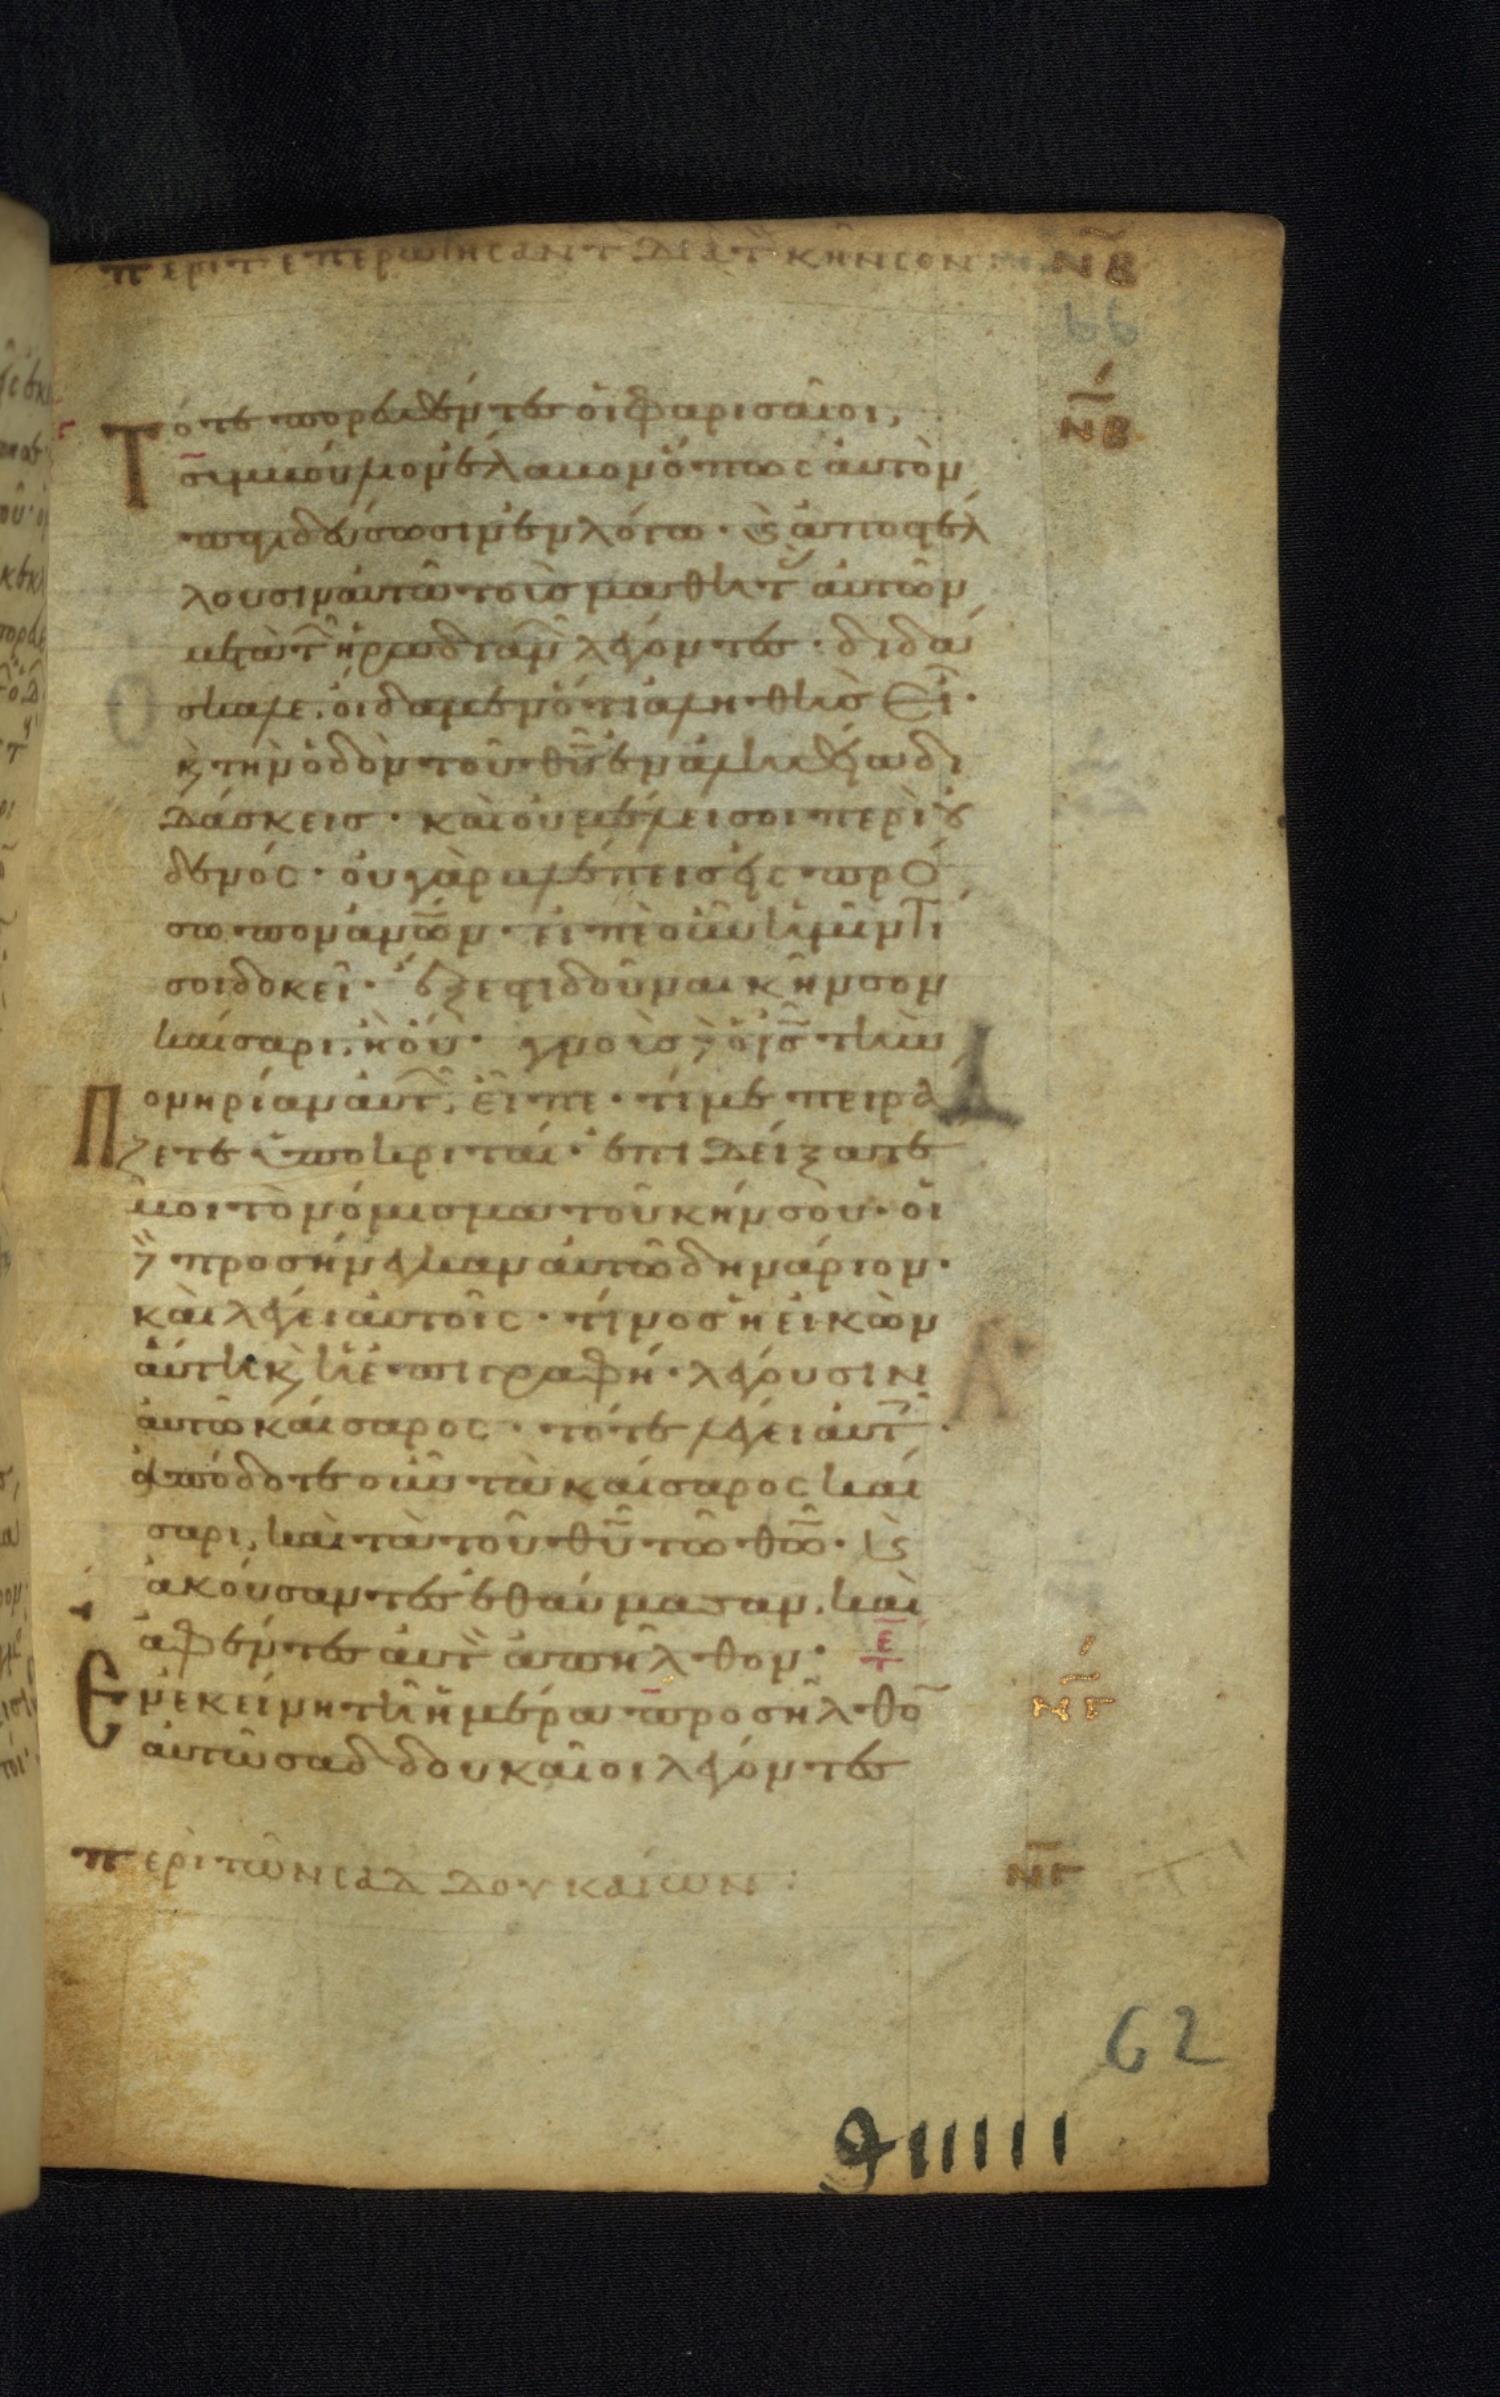 περι τ επερωτησαντ δια τ κηνσον: ΝΒ
66
Τότε πορευθέντες οἱ φαρισαῖοι, ΝΒ
συμβούλιον ἔλαβον ὅπως αὐτὸν
παγιδεύσωσιν ἐν λόγω· κ ἀποστέλ
λουσιν αὐτῶ τοὺς μαθητ αὐτῶν
μετὰ τ ἡρωδιαν λέγοντες· διδά
σκαλε, οἴδαμεν ὅτι ἀληθὴς εἶ·
κ τὴν ὁδὸν τοῦ θῦ ἐν ἀληθεία δι
δάσκεις· καὶ οὐ μέλει σοι περὶ οὐ
δενός· οὐ γὰρ βλέπεις εἰς πρό
σωπον ἀνῶν· εἰπὲ οὖν ἡμῖν τί
σοι δοκεῖ· ἔξεστι δοῦναι κῆνσον
καίσαρι, ἢ οὔ· γνοὺς δὲ ὁ ις τὴν
πονηρίαν αὐτ, εἶπε· τί με πειρά
ζετε ὑποκριταί· ἐπιδείξατέ
μοι τὸ νόμισμα τοῦ κήνσου· οἱ
δὲ προσήνεγκαν αὐτῶ δηνάριον·
καὶ λέγει αὐτοῖς· τίνος ἡ εἰκὼν
αὕτη κ ἡ ἐπιγραφή· λέγουσιν
αὐτῶ καίσαρος· τότε λέγει αὐτ·
ἀπόδοτε οὖν τὰ καίσαρος καί
σαρι, καὶ τὰ τοῦ θῦ τῶ θῶ· κ
ἀκούσαντες ἐθαύμασαν, καὶ
ἀφέντες αὐτ ἀπῆλθον·
Ἐν ἐκείνη τῆ ἡμέρα προσῆλθο ΝΓ
αὐτῶ σαδδουκαῖοι λέγοντες
περὶ τῶν σαδδουκαίων: ΝΓ
62